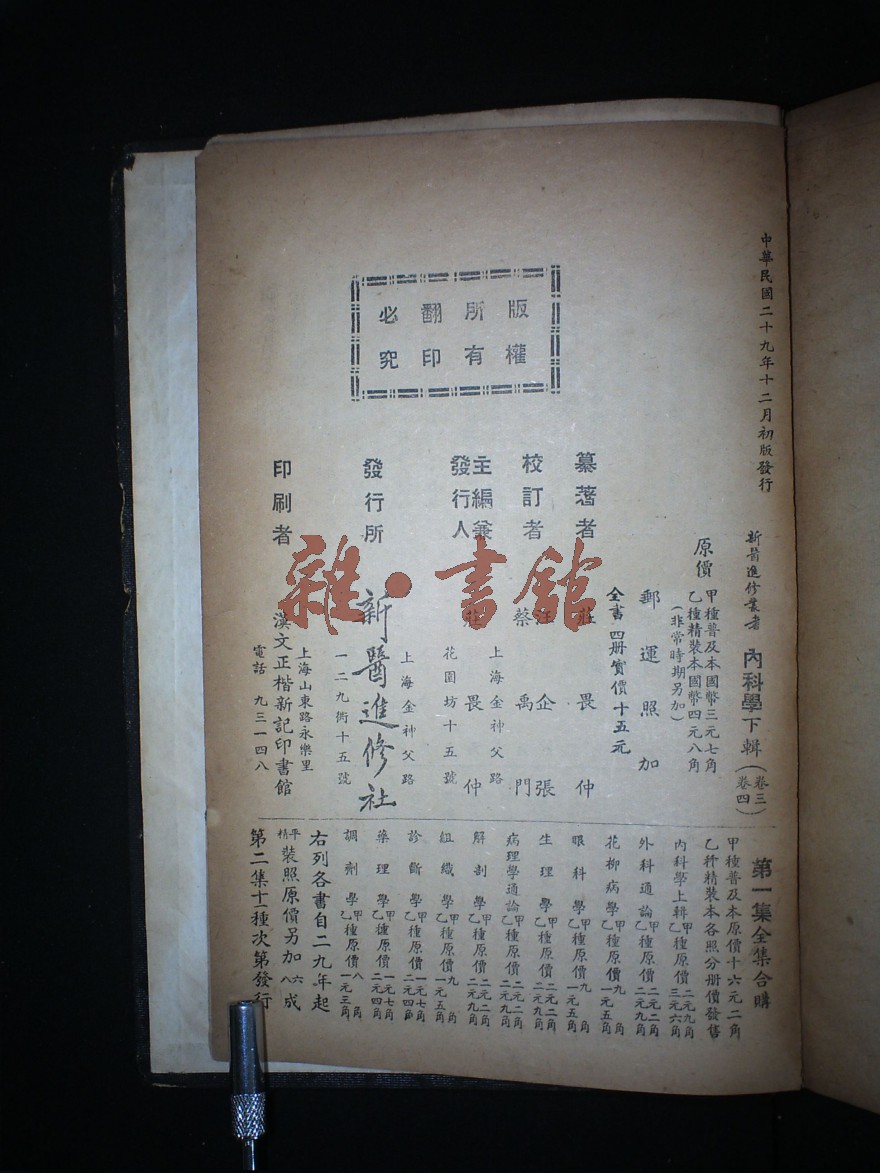 中華民國二十九年十二月初版發行
新醫進修叢書
內科學下輯
(卷三
卷四)
原價
甲種普及本國幣三元七角
乙種精裝本國幣四元八角
(非常時期另加)
郵運照加
全書四册實價十五元
版權
所有
翻印
必究
纂著者
莊畏仲
校訂者
汪企張
蔡禹門
主編兼
發行人
莊畏仲
上海金神父路
花園坊十五號
發行所
新醫進修社
上海金神父路
一二九衖十五號
印刷者
漢文正楷新記印書館
上海山東路永樂里
電話 九三一四八
第一集全集合購
甲種普及本原價十六元二角
乙種精裝本各照分册價發售
內科學上輯 甲種原價 二元九角
乙種原價 三元六角
外科通論 甲種原價 二元二角
乙種原價 二元九角
花柳病學 甲種原價 九角
乙種原價 一元五角
眼科學 甲種原價 九角
乙種原價 一元五角
生理學 甲種原價 二元二角
乙種原價 二元九角
病理學通論 甲種原價 二元二角
乙種原價 二元九角
解剖學 甲種原價 二元二角
乙種原價 二元九角
組織學 甲種原價 九角
乙種原價 一元五角
診斷學 甲種原價 一元七角
乙種原價 二元四角
藥理學 甲種原價 一元七角
乙種原價 二元四角
調劑學 甲種原價 八角
乙種原價 一元三角
右列各書自二九年起
平精裝照原價另加六八成
第二集十一種次第發行
雜·書館